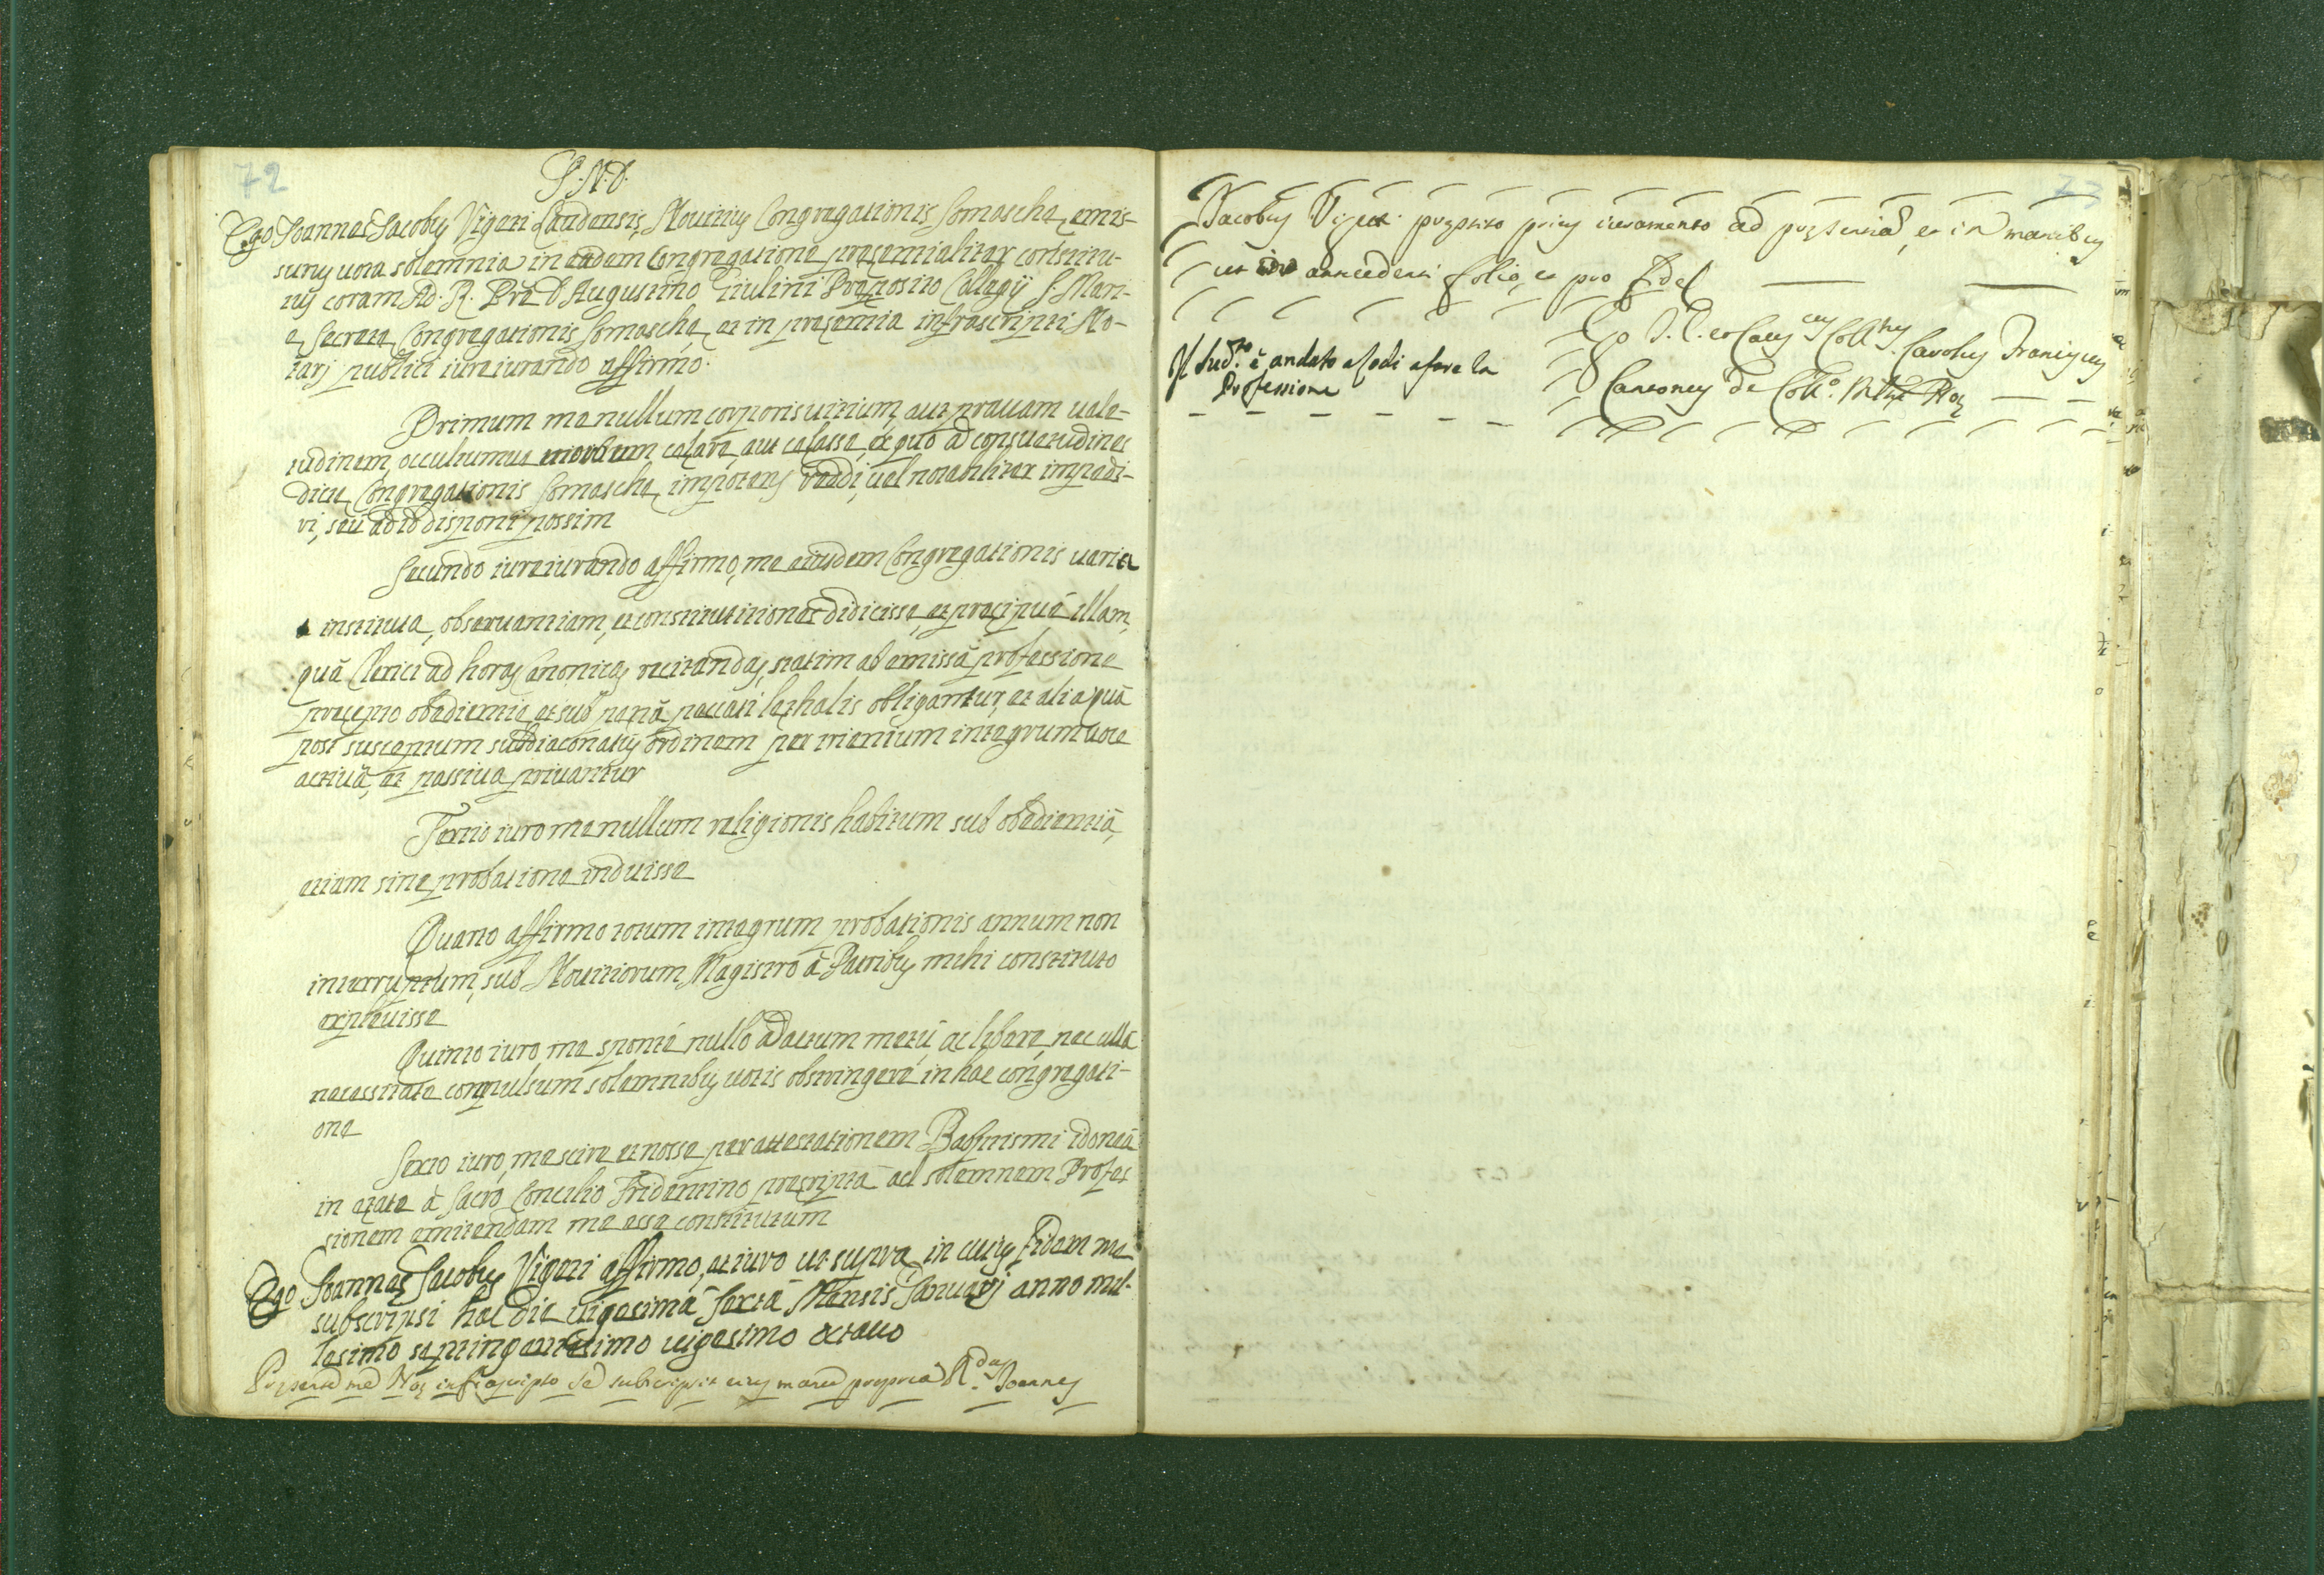 72
I. N. D.
Ego Joannes Jacobus Vigori Laudensis, Novitius Congregationis Somaschæ, emis-
surus vota solemnia in eadem Congregatione præsentialiter constitu-
tus coram Ad. R. Pre D. Augustino Giulini Præposito Collegij S. Mari-
æ Secretæ Congregationis Somaschæ, et in præsentia infrascripti No-
tarj publici iureiurando affirmo.
Primum me nullum corporis vitium, aut pravam vale-
tudinem, occultumve morbum celare, aut celasse, ex quo ad consuetudines
dictæ Congregationis Somaschæ impotens reddi, vel notabiliter impedi-
ri, seu ad id disponi possim
Secundo iureiurando affirmo, me eiusdem Congregationis varia
instituta, observantiam, et constitutiones didicisse, et præcipuè illam,
quâ Clerici ad horas Canonicas recitandas, statim ab emissâ professione
præcepto obedientiæ et sub pænâ peccati lethalis obligantur, et alia quâ
post susceptum subdiaconatus ordinem per trienium integrum voce
activâ, et passiva privantur
Tertio iuro me nullum religionis habitum sub obedientiâ,
etiam sine probatione induisse
Quarto affirmo totum integrum probationis annum non
interruptum, sub Novitiorum Magistro à Patribus mihi constituto
explevisse
Quinto iuro me sponte nullo adactum metu, ac libere, nec ulla
necessitate compulsum solemnibus votis obstringere in hac congregati-
one
Sexto iuro, me scire et nosse per attestationem Baptismi idoneâ
in ætate à Sacro Concilio Tridentino præscriptâ ad solemnem Profes
sionem emittendam me esse constitutum
Ego Joannes Jacobus Vigori affirmo, et iuro ut supra in cuius fidem me
subscripsi hac die vigesimâ sextâ Mensis Januarij anno mil-
lesimo septingentesimo vigesimo octavo
Præsente me Noz infrascripto se subscripsit eius manu propria R.dus Joannes
73
Jacobus prestito prius iuramento ad et in manibus
ut in antecedenti folio, et pro Fide
Ego J. C. et Caus.cus Coll.tus Carolus Franiscus
Cantones de Coll.o Noz
Il Sud.to è andato a Lodi a fare la
Professione